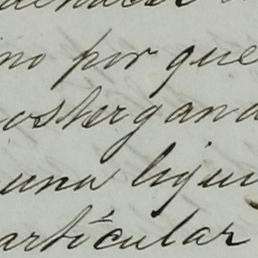 no por que
ostergand
una liqui
articular